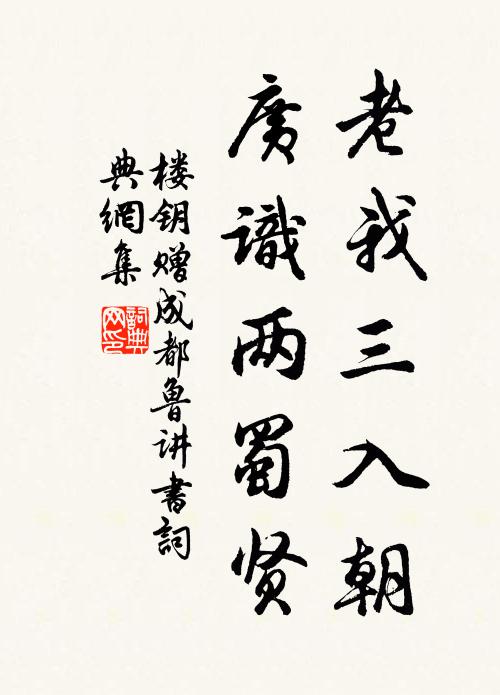 老我三入朝
廣識两蜀贤
楼钥赠成都鲁讲書詞
典網集
詞典网印